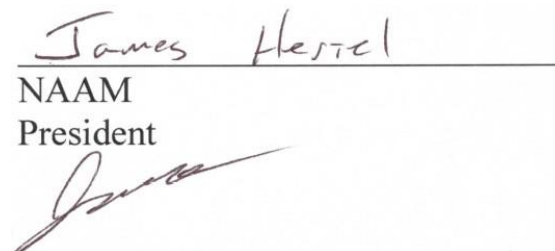 James Hessel
NAAM
President